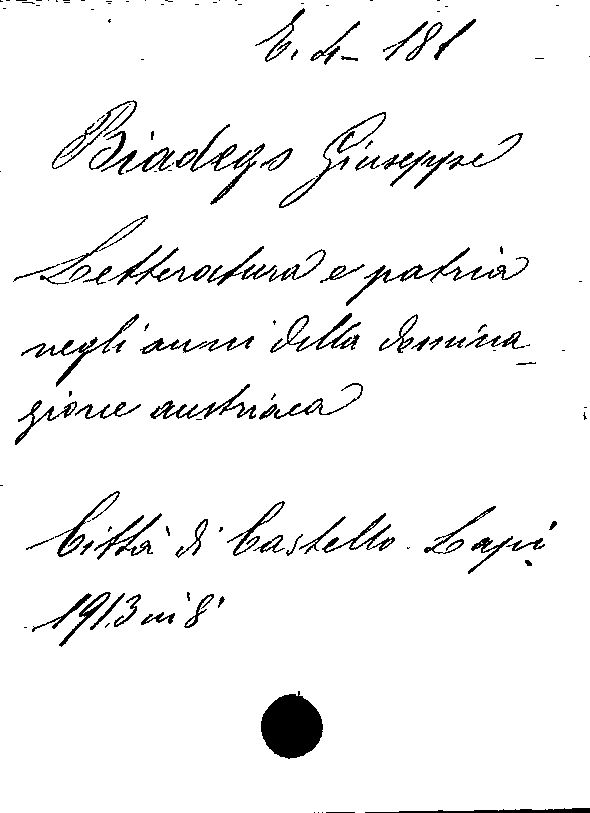 E. 4 - 181
Biadego Giuseppe
Letteratura e patria
negli anni della domina_
zione austriaca
Città di Castello. Lapi
1913 in 8°